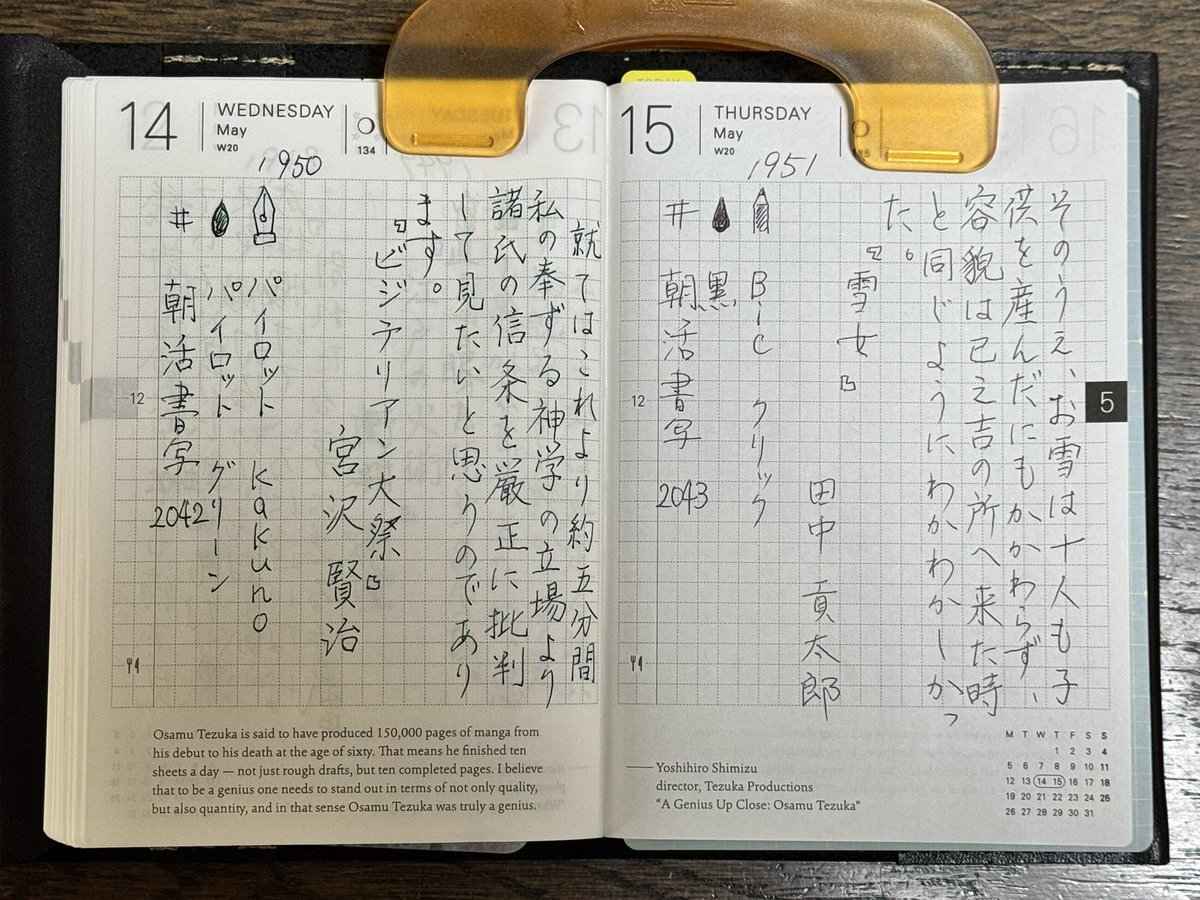 14
WEDNESDAY
May
W20
134
1950
就てはこれより約五分間
私の奉ずる神学の立場より
諸氏の信条を厳正に批判
して見たいと思うのであり
ます。
『ビジテリアン大祭』
宮沢 賢治
パイロット kakuno
パイロット グリーン
# 朝活書写 2042
12
Osamu Tezuka is said to have produced 150,000 pages of manga from
his debut to his death at the age of sixty. That means he finished ten
sheets a day — not just rough drafts, but ten completed pages. I believe
that to be a genius one needs to stand out in terms of not only quality,
but also quantity, and in that sense Osamu Tezuka was truly a genius.
TODAY
15
THURSDAY
May
W20
1951
そのうえ、お雪は十人も子
供を産んだにもかかわらず、
容貌は巳之吉の所へ来た時
と同じようにわかわかしかっ
た。
『雪女』
田中 貢太郎
BiC クリック
黒
# 朝活書写 2043
12
5
Yoshihiro Shimizu
director, Tezuka Productions
“A Genius Up Close: Osamu Tezuka”
M T W T F S S
1 2 3 4
5 6 7 8 9 10 11
12 13 14 15 16 17 18
19 20 21 22 23 24 25
26 27 28 29 30 31